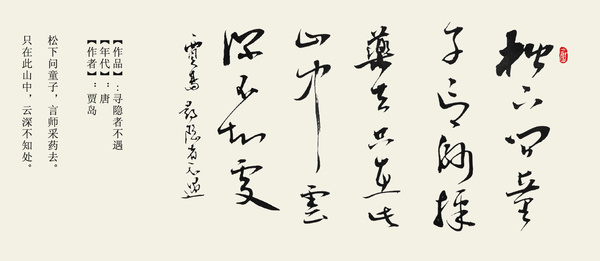 松下問童
子言師採
藥去只在此
山中雲
深不知處
賈島 尋隱者不遇
【作品】:寻隐者不遇
【年代】:唐
【作者】:贾岛
松下问童子,言师采药去。
只在此山中,云深不知处。